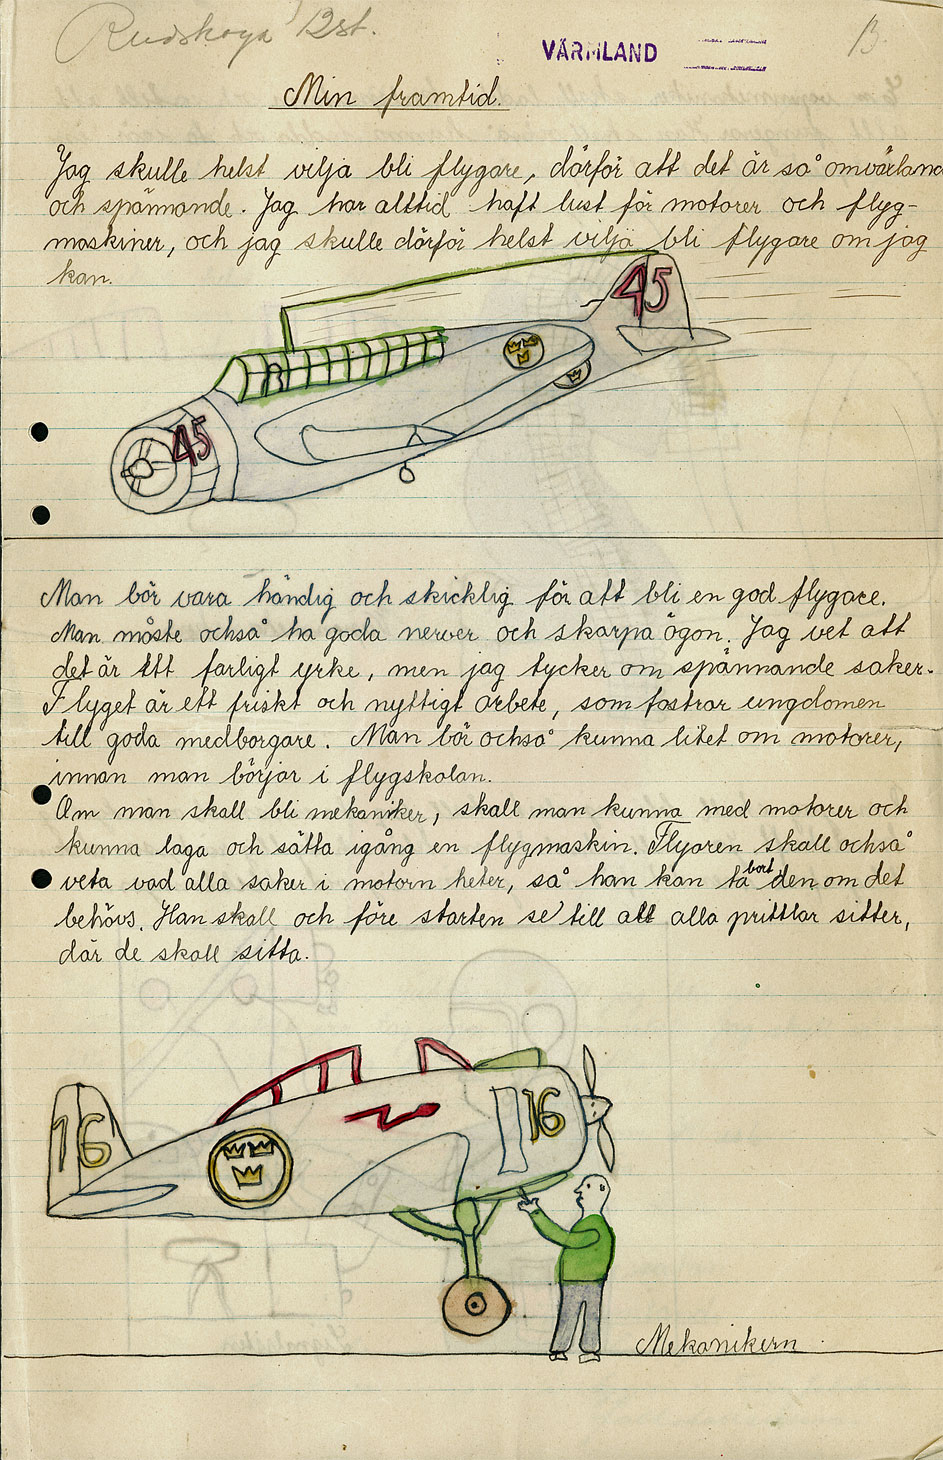 Rudskoga Bst.
VÄRMLAND
B.
Min framtid.
Jag skulle helst vilja bli flygare, därför att det är så omväxland
och spännande. Jag har alltid haft lust för motorer och flyg-
maskiner, och jag skulle därför helst vilja bli flygare om jag
kan.
45
45
Man bör vara händig och skicklig för att bli en god flygare.
Man måste också ha goda nerver och skarpa ögon. Jag vet att
det är ett farligt yrke, men jag tycker om spännande saker.
Flyget är ett friskt och nyttigt arbete, som fostrar ungdomen
till goda medborgare. Man bör också kunna litet om motorer,
innan man börjar i flygskolan.
Om man skall bli mekaniker, skall man kunna med motorer och
kunna laga och sätta igång en flygmaskin. Flyaren skall också
veta vad alla saker i motorn heter, så han kan ta bort den om det
behövs. Han skall och före starten se till att alla prittlar sitter,
där de skall sitta.
16
16
Mekanikern